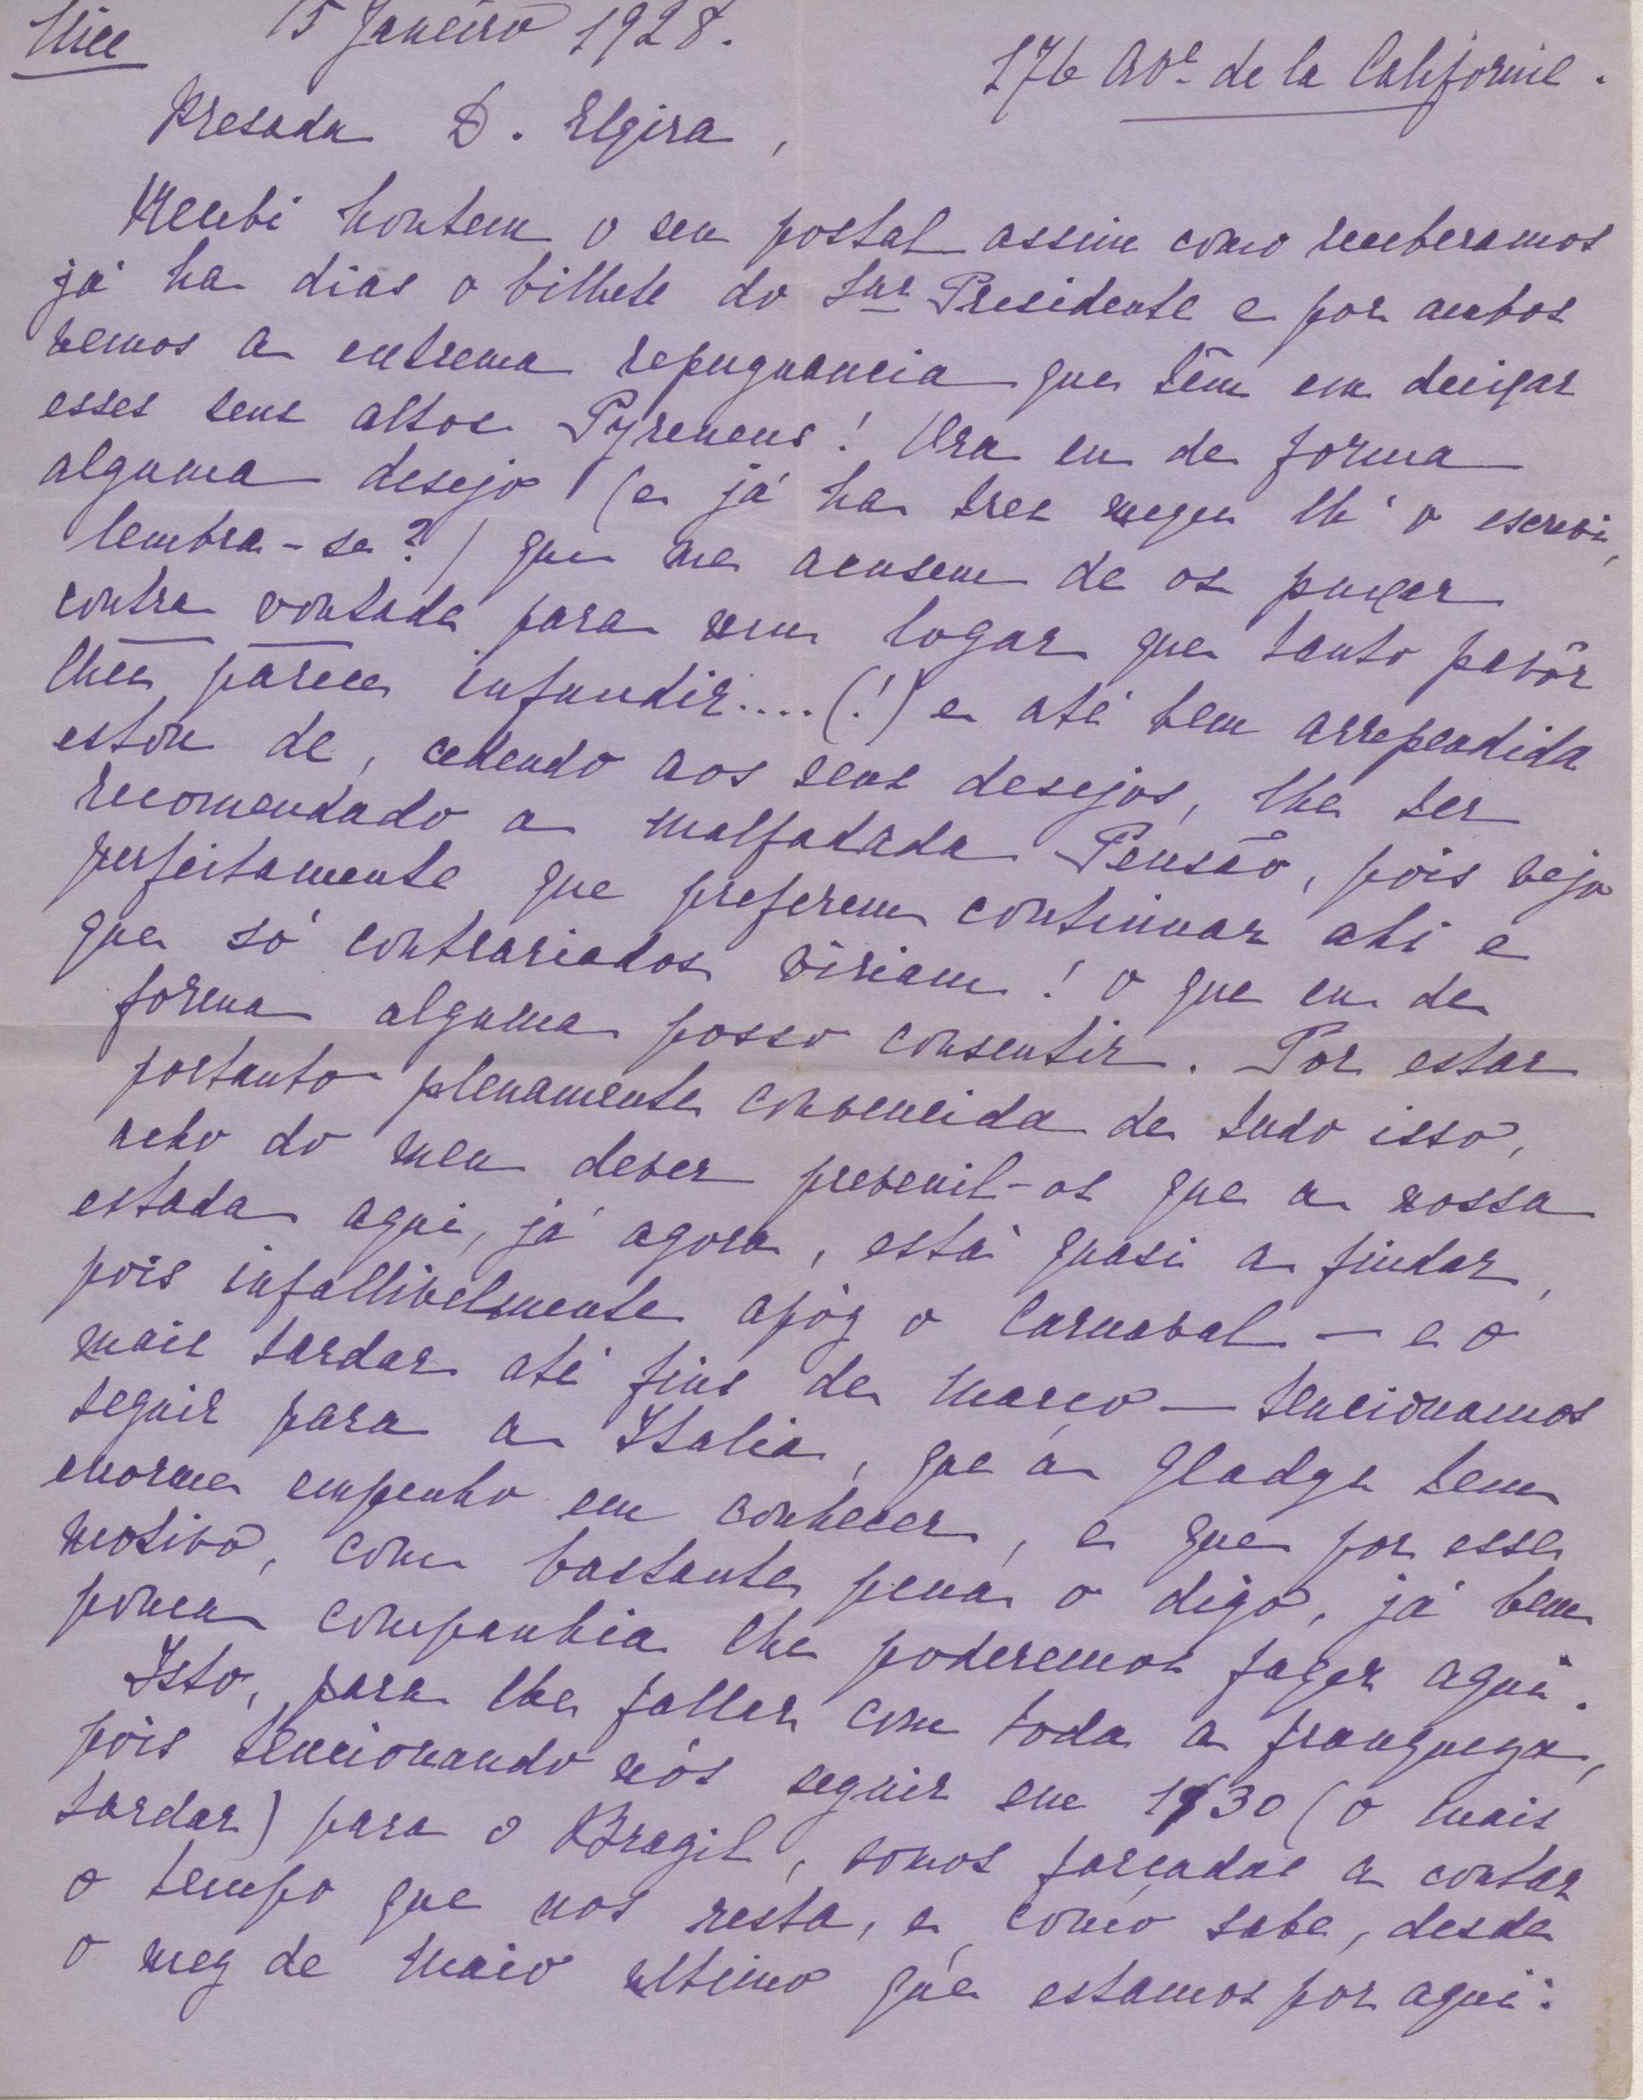 Nice 15 Janeiro 1928.
176 Avᵉ de la Californie.
Presada D. Elzira,
Recebi hontem o seu postal assim como receberamos
já ha dias o bilhete do Snr Presidente e por ambos
vemos a extrema repugnancia que têm em deixar
esses seus altos Pyreneus! Ora eu de forma
alguma desejo (e já ha tres mezes lh'o escrevi,
lembra-se?) que me acusem de os puxar
contra vontade para um logar que tanto pavôr
lhes parece infundir....(!) e até bem arrependida
estou de, cedendo aos seus desejos, lhe ter
recomendado a malfadada Pensão, pois vejo
perfeitamente que preferem continuar ahi e
que só contrariados viriam! o que eu de
forma alguma posso consentir. Por estar
portanto plenamente convencida de tudo isso,
acho do meu dever prevenil-os que a nossa
estada aqui, já agora, está quasi a findar,
pois infallivelmente apóz o Carnaval — e o
mais tardar até fins de Março — tencionamos
seguir para a Italia, que a Gladys tem
enorme empenho em conhecer, e que por esse
motivo, com bastante pena o digo, já bem
pouca companhia lhe poderemos fazer aqui.
Isto, para lhe fallar com toda a franqueza,
pois tencionando nós seguir em 1930 (o mais
tardar) para o Brazil, somos forçadas a contar
o tempo que nos resta, e, como sabe, desde
o mez de Maio ultimo que estamos por aqui: